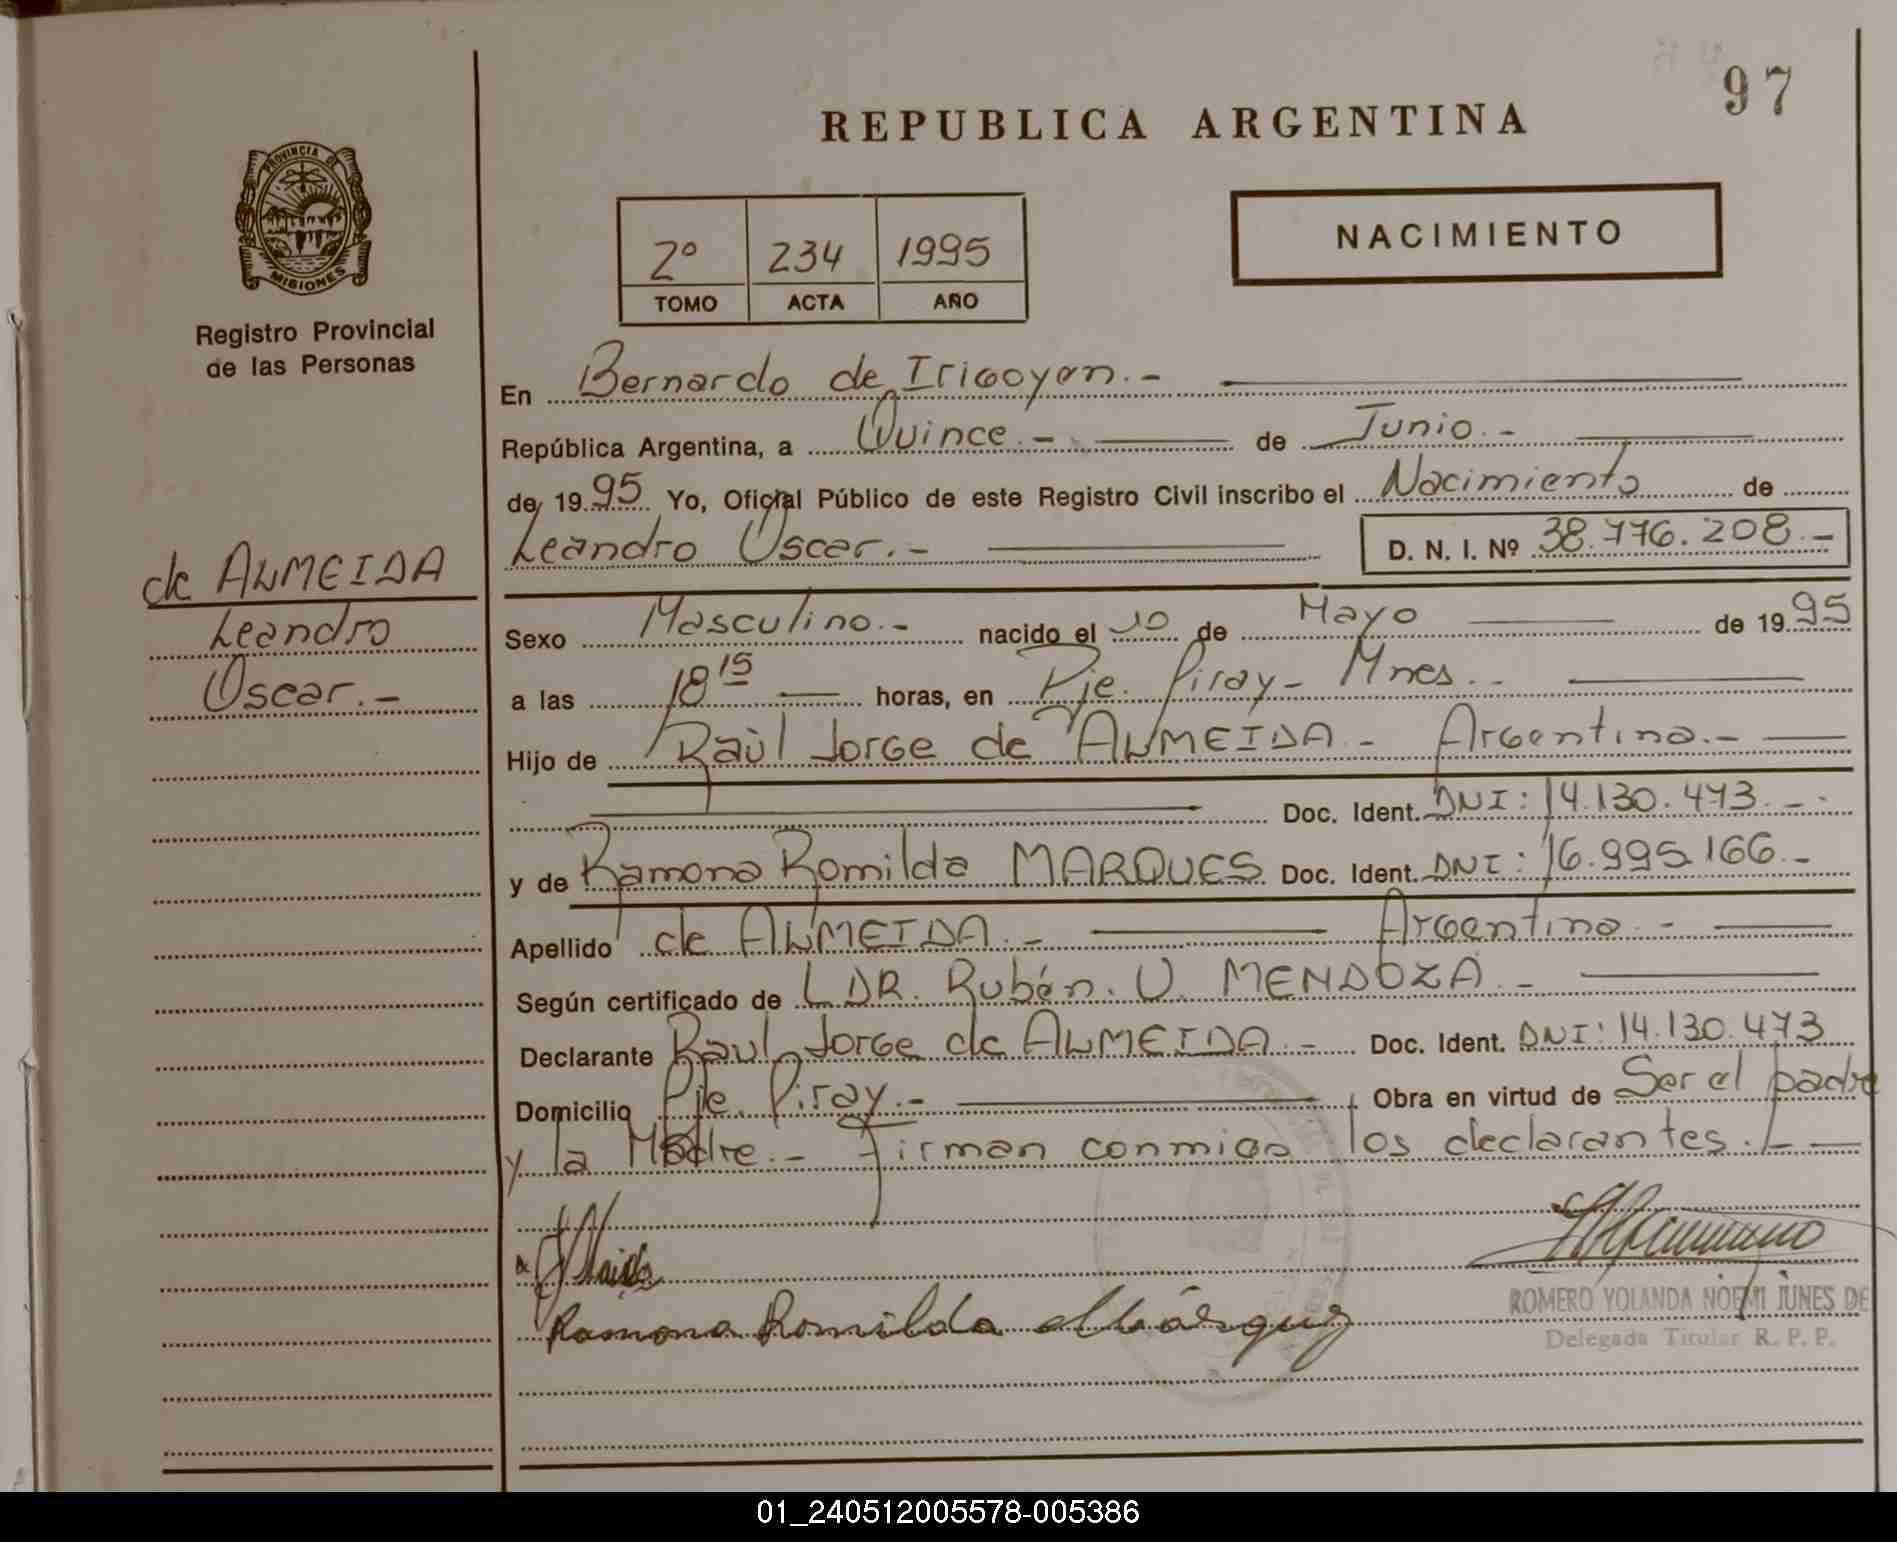 97
REPUBLICA ARGENTINA
PROVINCIA DE
MISIONES
Registro Provincial
de las Personas
2º 234 1995
TOMO ACTA AÑO
NACIMIENTO
En Bernardo de Irigoyen.-
República Argentina, a Quince.- de Junio.-
de 1995 Yo, Oficial Público de este Registro Civil inscribo el Nacimiento de
Leandro Oscar.- D. N. I. Nº 38.776.208.-
de ALMEIDA
Leandro
Oscar.-
Sexo Masculino.- nacido el 10 de Mayo de 1995
a las 18 15 horas, en Pje. Piray- Mnes.-
Hijo de Raùl Jorge de ALMEIDA.- Argentino.-
Doc. Ident. DNI: 14.130.473.-
y de Ramona Romilda MARQUES Doc. Ident. DNI: 16.995.166.-
Apellido de ALMEIDA.- Argentina.-
Según certificado de LDR. Rubén. U. MENDOZA.-
Declarante Raul Jorge de ALMEIDA.- Doc. Ident. DNI: 14.130.473
Domicilio Pje. Piray.- Obra en virtud de Ser el padre
y la Madre.- Firman conmigo los declarantes.-
Ramona Romilda Márquez
ROMERO YOLANDA NOEMI IUNES DE
Delegada Titular R. P. P.
01_240512005578-005386